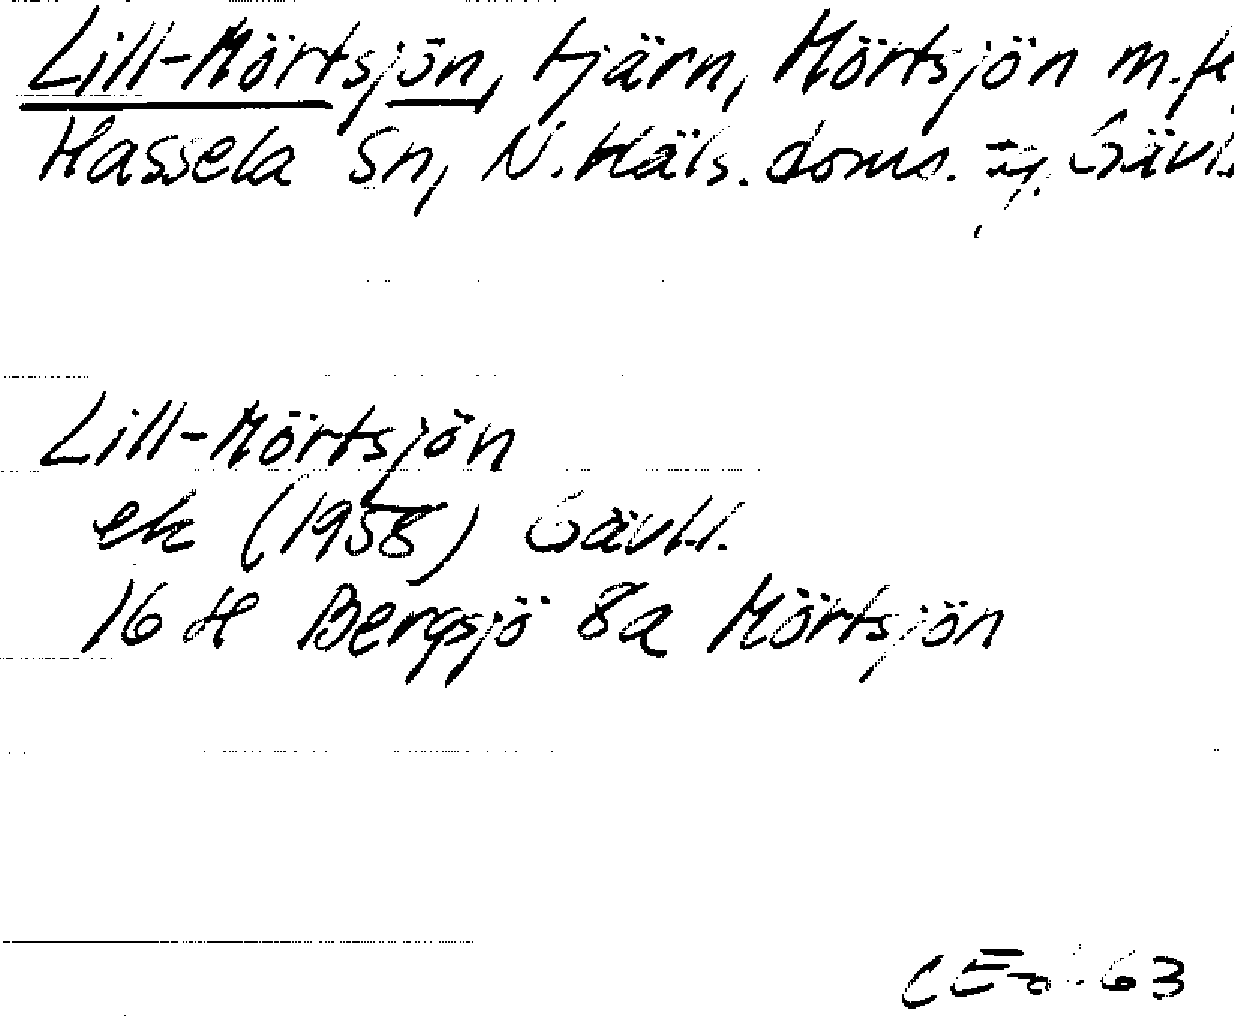 Lill-Mörtsjön, tjärn, Mörtsjön m.fl
Hassela Sn, N. Häls. doms. Gävl.
Lill-Mörtsjön
ek (1958) Gävl.l.
16 H Bergsjö 8a Mörtsjön
63